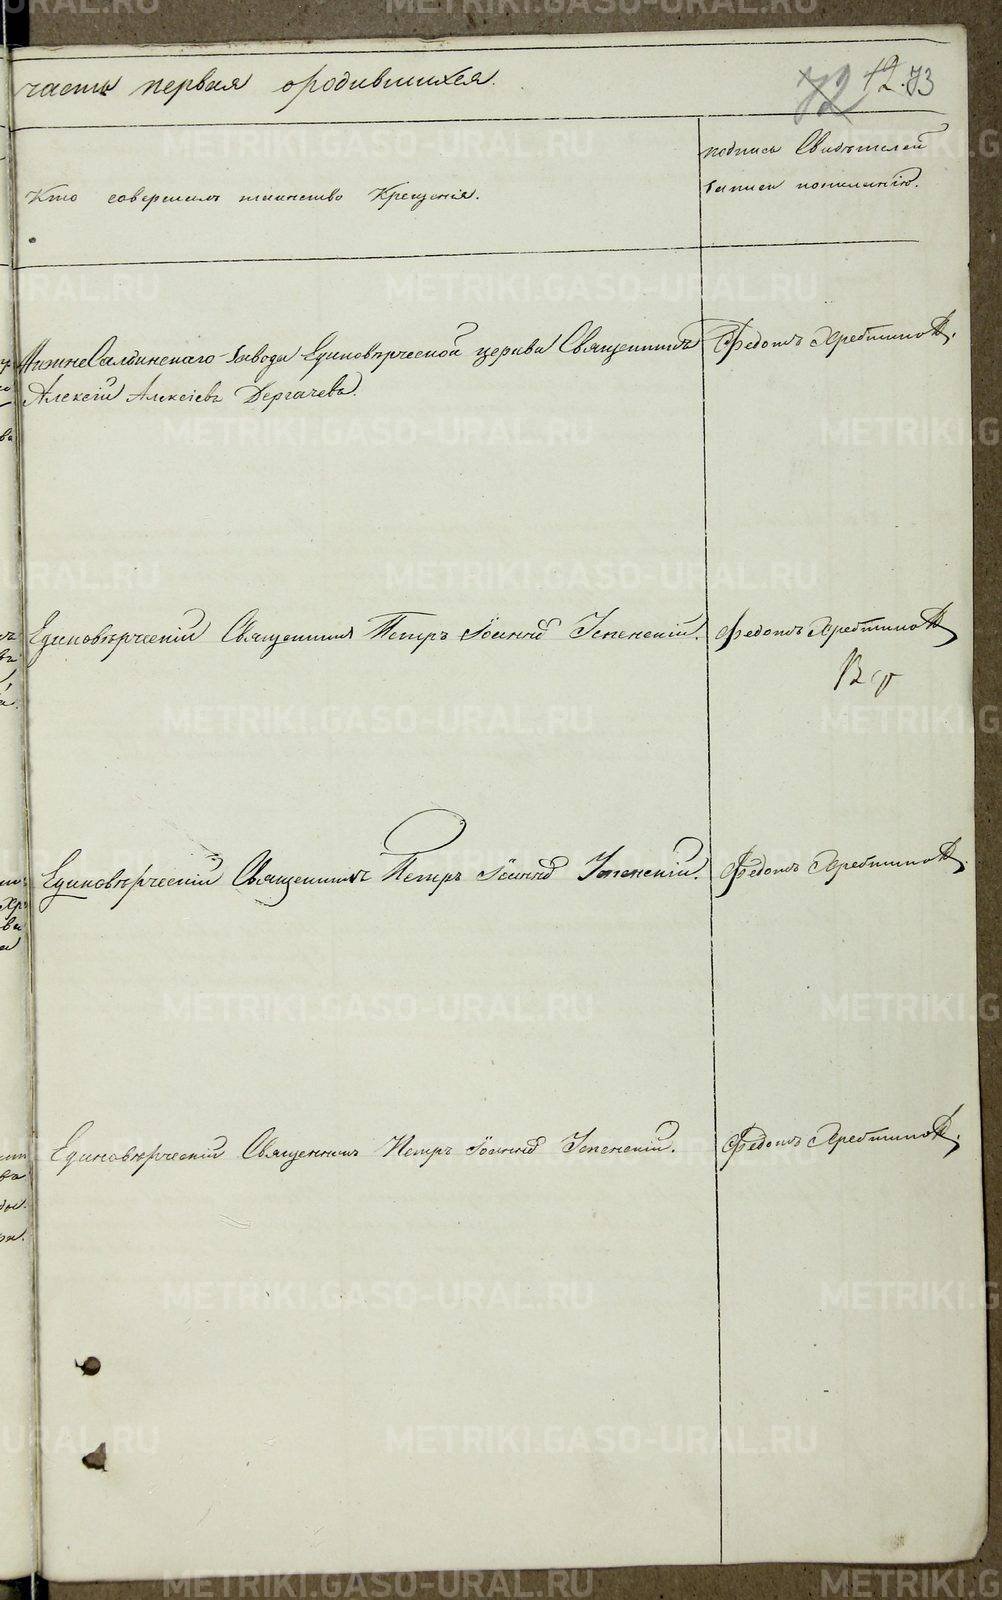 часть первая о родившихся.
72 12. 73
Кто совершалъ таинство Крещенія.
подпись Свидѣтелей
записи по желанію.
НижнеСалдинскаго Завода Единовѣрческой церкви Священникъ
Алексій Алексіевъ Дергачевъ.
Федотъ
Единовѣрческій Священникъ Петръ Іоаннъ Успенскій.
Федотъ
Единовѣрческій Священникъ Петръ Іоаннъ Успенскій.
Федотъ
Единовѣрческій Священникъ Петръ Іоаннъ Успенскій.
Федотъ
METRIKI.GASO-URAL.RU